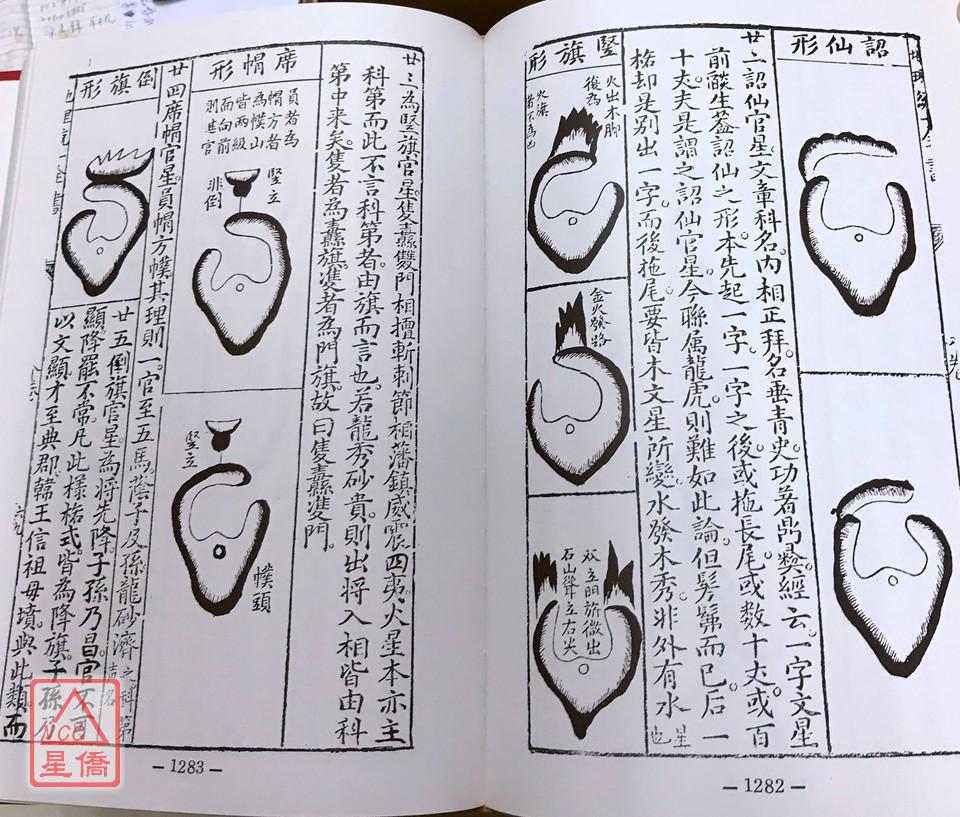 詔仙形
廿二詔仙官星文章科名內相正拜名垂青史功著鼎彝經云一字文星
前酸生蓋詔仙之形本先起一字一字之後或拖長尾或数十丈或百
十丈夫是謂之詔仙官星今聯属龍虎則難如此論但髣髴而已后一
格却是別出一字而後拖尾要皆木文星所變水發木秀非外有水星也
竪旗形
火出木脚
後為
火旗
金火發路
双立門旂微出
石山聳立右尖
－1282－
廿三為竪旗官星隻纛雙門相擅斬刺節相藩鎮威震四夷火星本亦主
科第而此不言科第者由旗而言也若龍秀砂貴則出将入相皆由科
第中来矣隻者為纛旗㕠者為門旗故曰隻纛㕠門
席帽形
員者為
帽方者
為幞山
皆两級
而向前
則甚官
竪立
非倒
竪立
幞頭
廿四席帽官星員帽方幞其理則一官至五馬蔭子及孫龍砂濟之科第
倒旗形
廿五倒旗官星為将先降子孫乃昌官不可
顯降罷不常凡此樣格式皆為降旗子孫乃
以文顯才至典郡韓王信祖母墳與此類而
－1283－
NCC
星僑